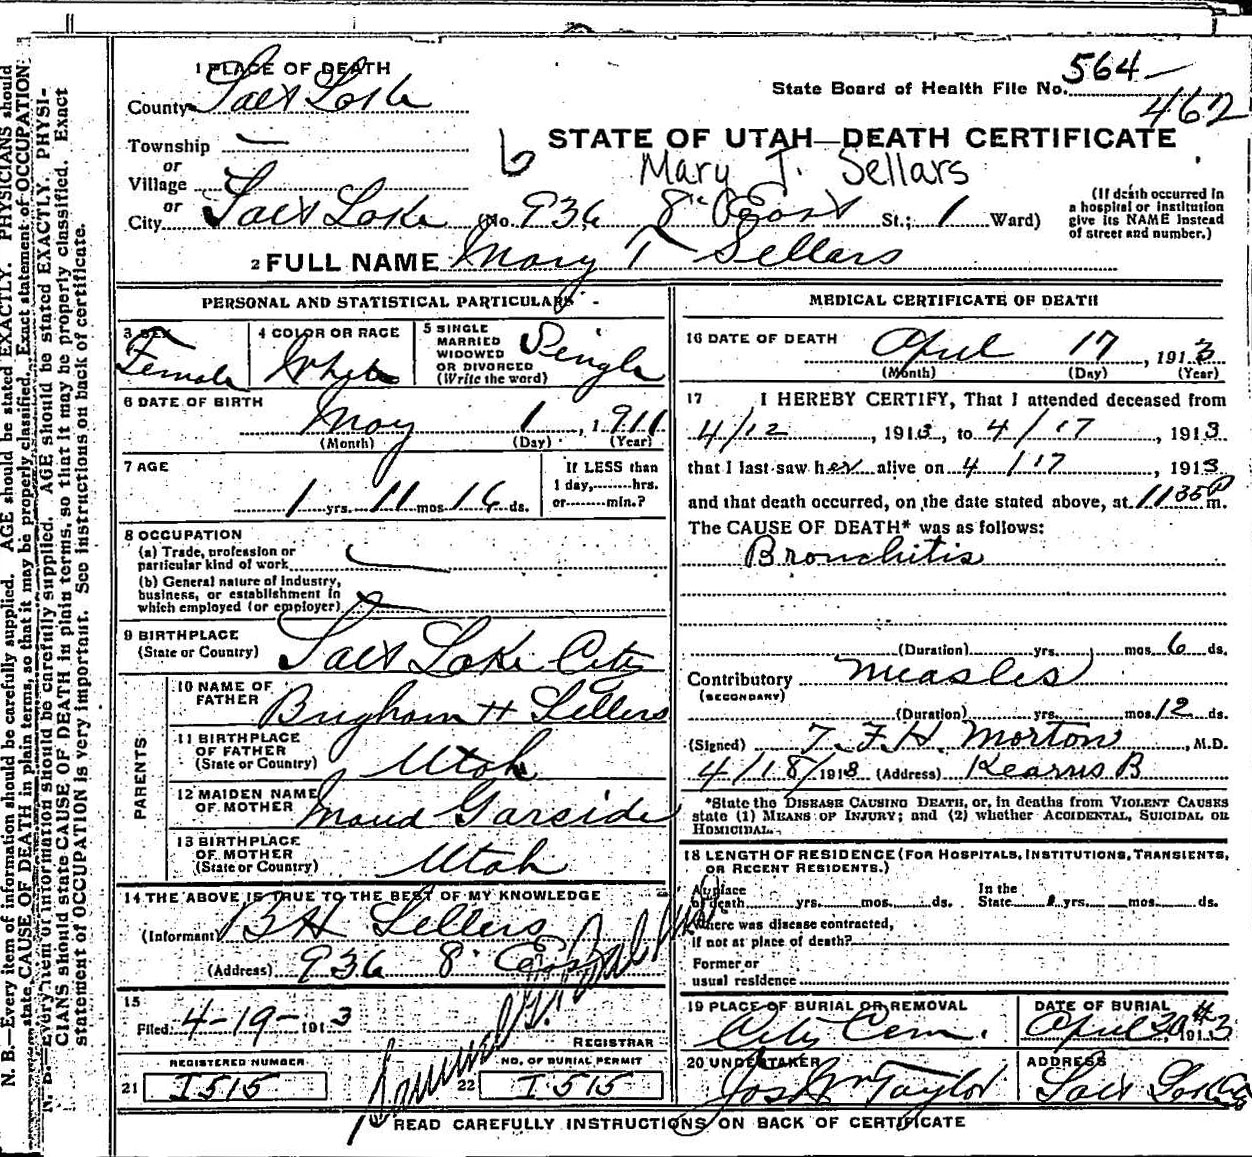 N. B.—Every item of information should be carefully supplied. AGE should be stated EXACTLY. PHYSICIANS should
state CAUSE OF DEATH in plain terms, so that it may be properly classified. Exact statement of OCCUPATION
N. B.—Every item of information should be carefully supplied. AGE should be stated EXACTLY. PHYSI-
CIANS should state CAUSE OF DEATH in plain terms, so that it may be properly classified. Exact
statement of OCCUPATION is very important. See instructions on back of certificate.
1 PLACE OF DEATH
County Salt Lake
State Board of Health File No. 564—
462
Township —
or
Village
or
STATE OF UTAH—DEATH CERTIFICATE
Mary T. Sellars
City Salt Lake (No. 936 8th East St.; 1 Ward)
(If death occurred in
a hospital or institution
give its NAME instead
of street and number.)
2 FULL NAME Mary T Sellars
PERSONAL AND STATISTICAL PARTICULARS
3 SEX
Female
4 COLOR OR RACE
White
5 SINGLE
MARRIED
WIDOWED
OR DIVORCED
(Write the word)
Single
6 DATE OF BIRTH
May 1, 1911
(Month) (Day) (Year)
7 AGE
1 yrs. 11 mos. 16 ds.
If LESS than
1 day, hrs.
or min.?
8 OCCUPATION
(a) Trade, profession or
particular kind of work
(b) General nature of Industry,
business, or establishment in
which employed (or employer)
9 BIRTHPLACE
(State or Country) Salt Lake City
PARENTS
10 NAME OF
FATHER Brigham H Sellers
11 BIRTHPLACE
OF FATHER
(State or Country) Utah
12 MAIDEN NAME
OF MOTHER Maud Garside
13 BIRTHPLACE
OF MOTHER
(State or Country) Utah
14 THE ABOVE IS TRUE TO THE BEST OF MY KNOWLEDGE
(Informant) B H Sellers
(Address) 936 8 East
15
Filed 4-19- 1913
REGISTRAR
REGISTERED NUMBER
21 I515
NO. OF BURIAL PERMIT
22 I515
MEDICAL CERTIFICATE OF DEATH
16 DATE OF DEATH
April 17, 1913
(Month) (Day) (Year)
17 I HEREBY CERTIFY, That I attended deceased from
4/12, 1913, to 4/17, 1913
that I last saw her alive on 4/17, 1913
and that death occurred, on the date stated above, at 1135 P m.
The CAUSE OF DEATH* was as follows:
Bronchitis
(Duration) yrs. mos. 6 ds.
Contributory Measles
(SECONDARY)
(Duration) yrs. mos. 12 ds.
(Signed) T. F. H. Morton, M.D.
4/18/1913 (Address) Kearns B
*State the DISEASE CAUSING DEATH, or, in deaths from VIOLENT CAUSES
state (1) MEANS OF INJURY; and (2) whether ACCIDENTAL, SUICIDAL OR
HOMICIDAL.
18 LENGTH OF RESIDENCE (FOR HOSPITALS, INSTITUTIONS, TRANSIENTS,
OR RECENT RESIDENTS.)
At place
of death yrs. mos. ds.
In the
State yrs. mos. ds.
Where was disease contracted,
if not at place of death?
Former or
usual residence
19 PLACE OF BURIAL OR REMOVAL
City Cem.
DATE OF BURIAL
April 20, 1913
20 UNDERTAKER
Jos Wm Taylor
ADDRESS
Salt Lake City
READ CAREFULLY INSTRUCTIONS ON BACK OF CERTIFICATE